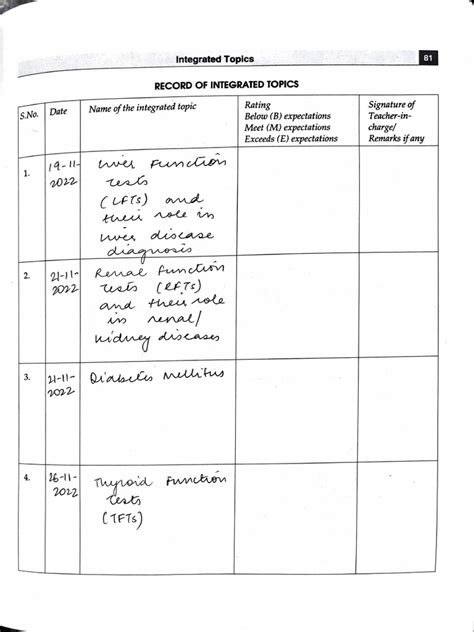 Integrated Topics 81
RECORD OF INTEGRATED TOPICS
S.No. Date Name of the integrated topic Rating Signature of
Below (B) expectations Teacher-in-
Meet (M) expectations charge/
Exceeds (E) expectations Remarks if any
1. 19-11-2022 Liver Function
Tests
(LFTs) and
their role in
liver disease
diagnosis
2. 21-11-2022 Renal Function
Tests (RFTs)
and their role
in renal/
kidney diseases
3. 21-11-2022 Diabetes Mellitus
4. 26-11-2022 Thyroid Function
Tests
(TFTs)